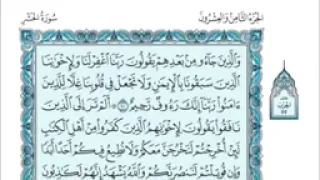 الجزء الثامن والعشرون
سورة الحشر
وَالَّذِينَ جَاءُو مِنۢ بَعْدِهِمْ يَقُولُونَ رَبَّنَا اغْفِرْ لَنَا وَلِإِخْوَٰنِنَا
الَّذِينَ سَبَقُونَا بِالْإِيمَٰنِ وَلَا تَجْعَلْ فِي قُلُوبِنَا غِلًّا لِّلَّذِينَ
ءَامَنُوا رَبَّنَا إِنَّكَ رَءُوفٌ رَّحِيمٌ ۝ أَلَمْ تَرَ إِلَى الَّذِينَ
نَافَقُوا يَقُولُونَ لِإِخْوَٰنِهِمُ الَّذِينَ كَفَرُوا مِنْ أَهْلِ الْكِتَٰبِ
لَئِنْ أُخْرِجْتُمْ لَنَخْرُجَنَّ مَعَكُمْ وَلَا نُطِيعُ فِيكُمْ أَحَدًا أَبَدًا
وَإِن قُوتِلْتُمْ لَنَنصُرَنَّكُمْ وَاللَّهُ يَشْهَدُ إِنَّهُمْ لَكَٰذِبُونَ